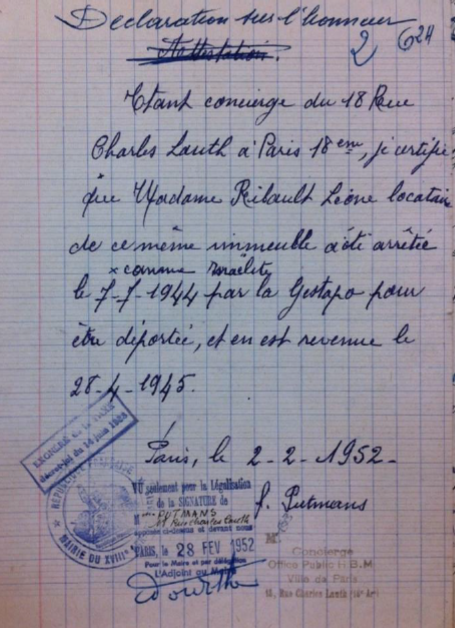 Declaration sur l'honneur
Attestation.
2 624
Etant concierge du 18 Rue
Charles Lauth à Paris 18eme, je certifie
que Madame Ribault Léone locataire
de ce même immeuble a été arrêtée
x comme Israëlite
le 7-7-1944 par la Gestapo pour
être déportée, et en est revenue le
28-4-1945.
Paris, le 2-2-1952-
J. Putmans
EXONÉRÉ de la TAXE
décret-loi du 14 juin 1938
RÉPUBLIQUE FRANÇAISE
MAIRIE DU XVIIIe
VU seulement pour la Légalisation
de la SIGNATURE de
M PUTMANS
18 Rue Charles Lauth
apposée ci-dessus et devant nous
PARIS, le 28 FEV 1952
Pour le Maire et par délégation
L'Adjoint au Maire
Mr
Concierge
Office Public H.B.M.
Ville de Paris
18, Rue Charles Lauth (18e Ar)